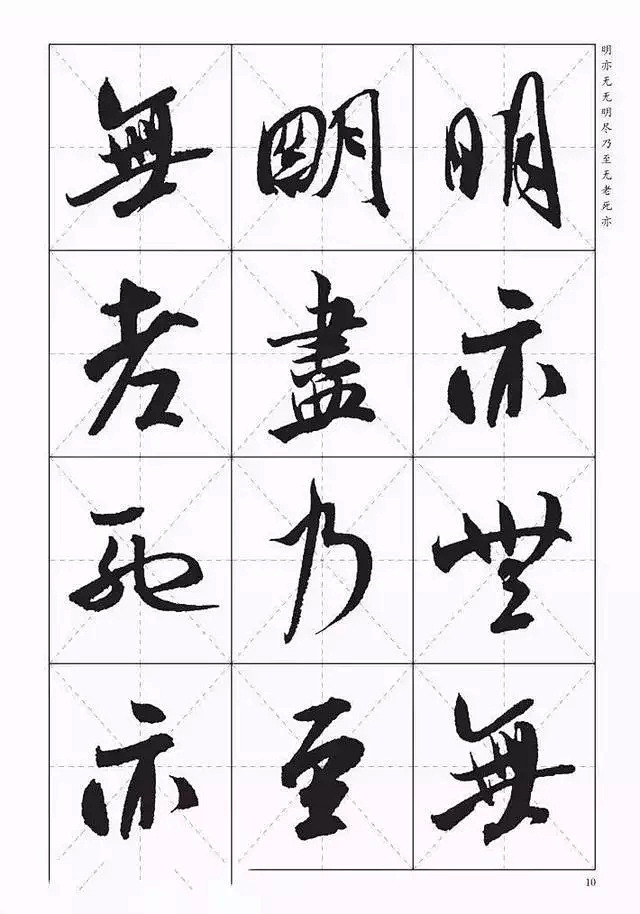 明亦无无明尽乃至无老死亦
明亦無無
明盡乃至
無老死亦
10